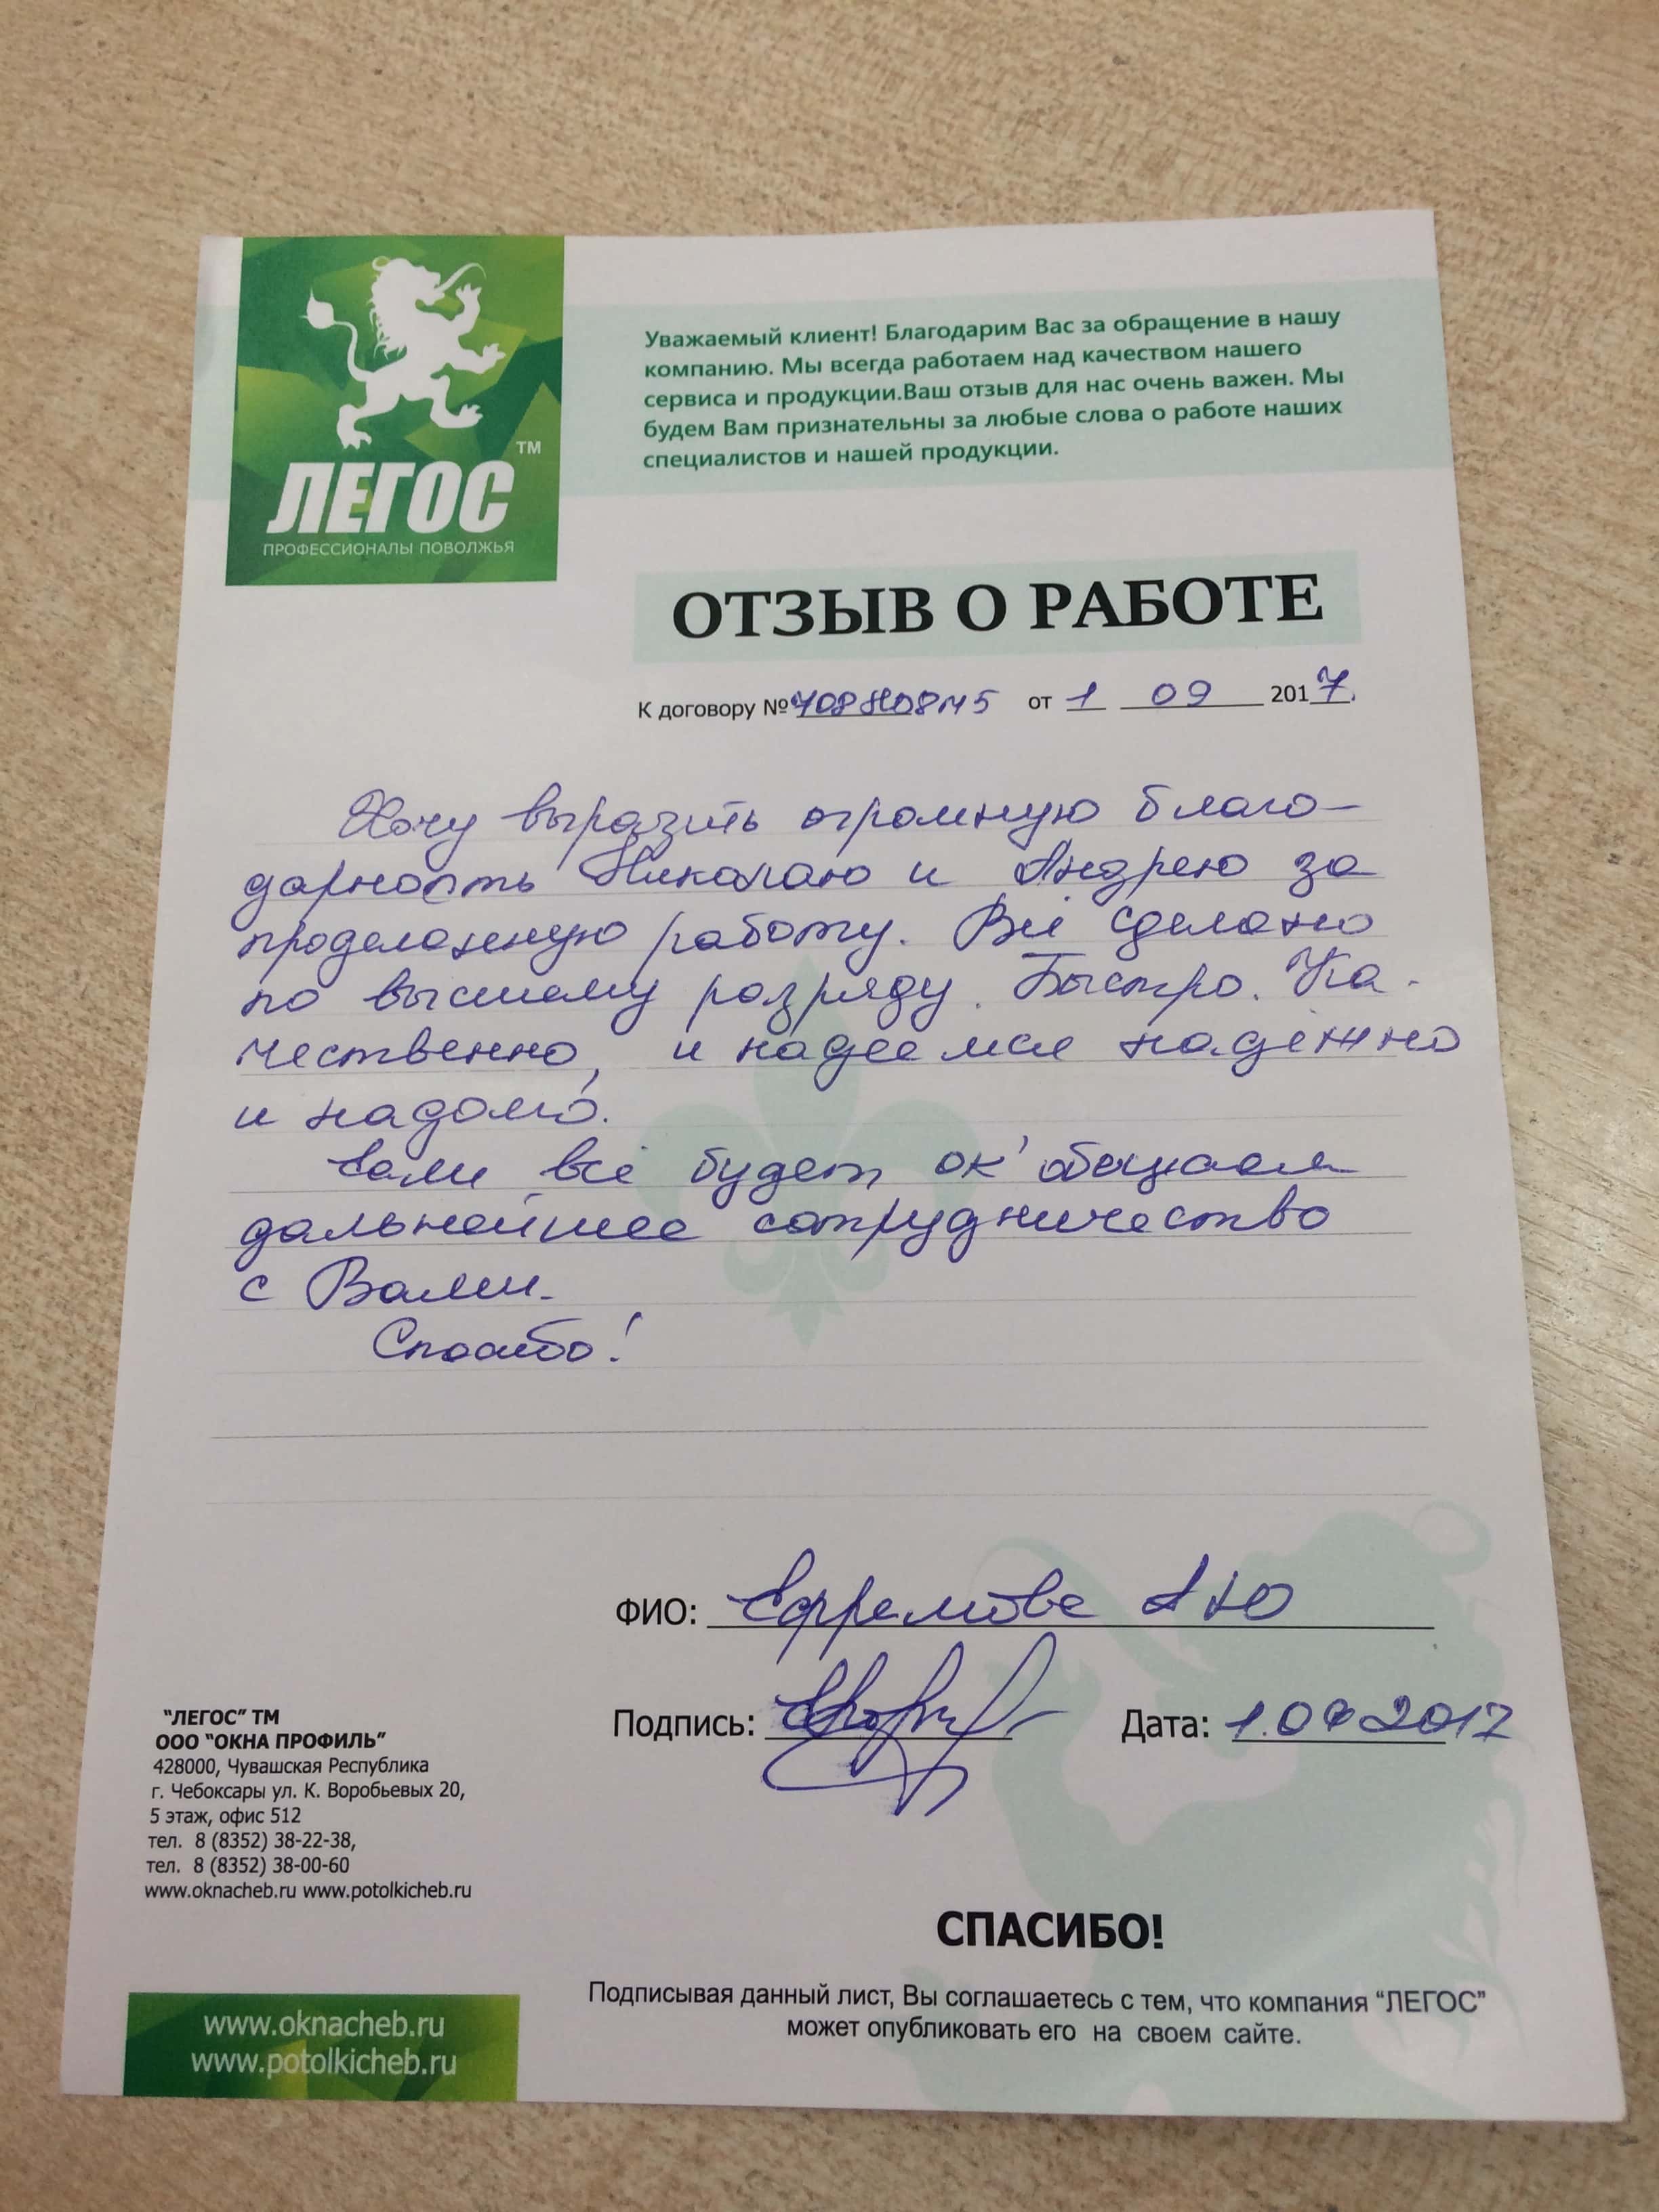 ЛЕГОС ™
ПРОФЕССИОНАЛЫ ПОВОЛЖЬЯ
Уважаемый клиент! Благодарим Вас за обращение в нашу
компанию. Мы всегда работаем над качеством нашего
сервиса и продукции.Ваш отзыв для нас очень важен. Мы
будем Вам признательны за любые слова о работе наших
специалистов и нашей продукции.
ОТЗЫВ О РАБОТЕ
К договору № от 1 09 2017.
Хочу выразить огромную благо-
дарность Николаю и Андрею за
проделанную работу. Всё сделано
по высшему разряду. Быстро. Ка-
чественно, и надеемся надёжно
и надолго.
Если всё будет ок' обещаем
дальнейшее сотрудничество
с Вами.
Спасибо!
ФИО: Ефремова А Ю
Подпись: Дата: 1.09 2017
"ЛЕГОС" ТМ
ООО "ОКНА ПРОФИЛЬ"
428000, Чувашская Республика
г. Чебоксары ул. К. Воробьевых 20,
5 этаж, офис 512
тел. 8 (8352) 38-22-38,
тел. 8 (8352) 38-00-60
www.oknacheb.ru www.potolkicheb.ru
СПАСИБО!
Подписывая данный лист, Вы соглашаетесь с тем, что компания "ЛЕГОС"
может опубликовать его на своем сайте.
www.oknacheb.ru
www.potolkicheb.ru